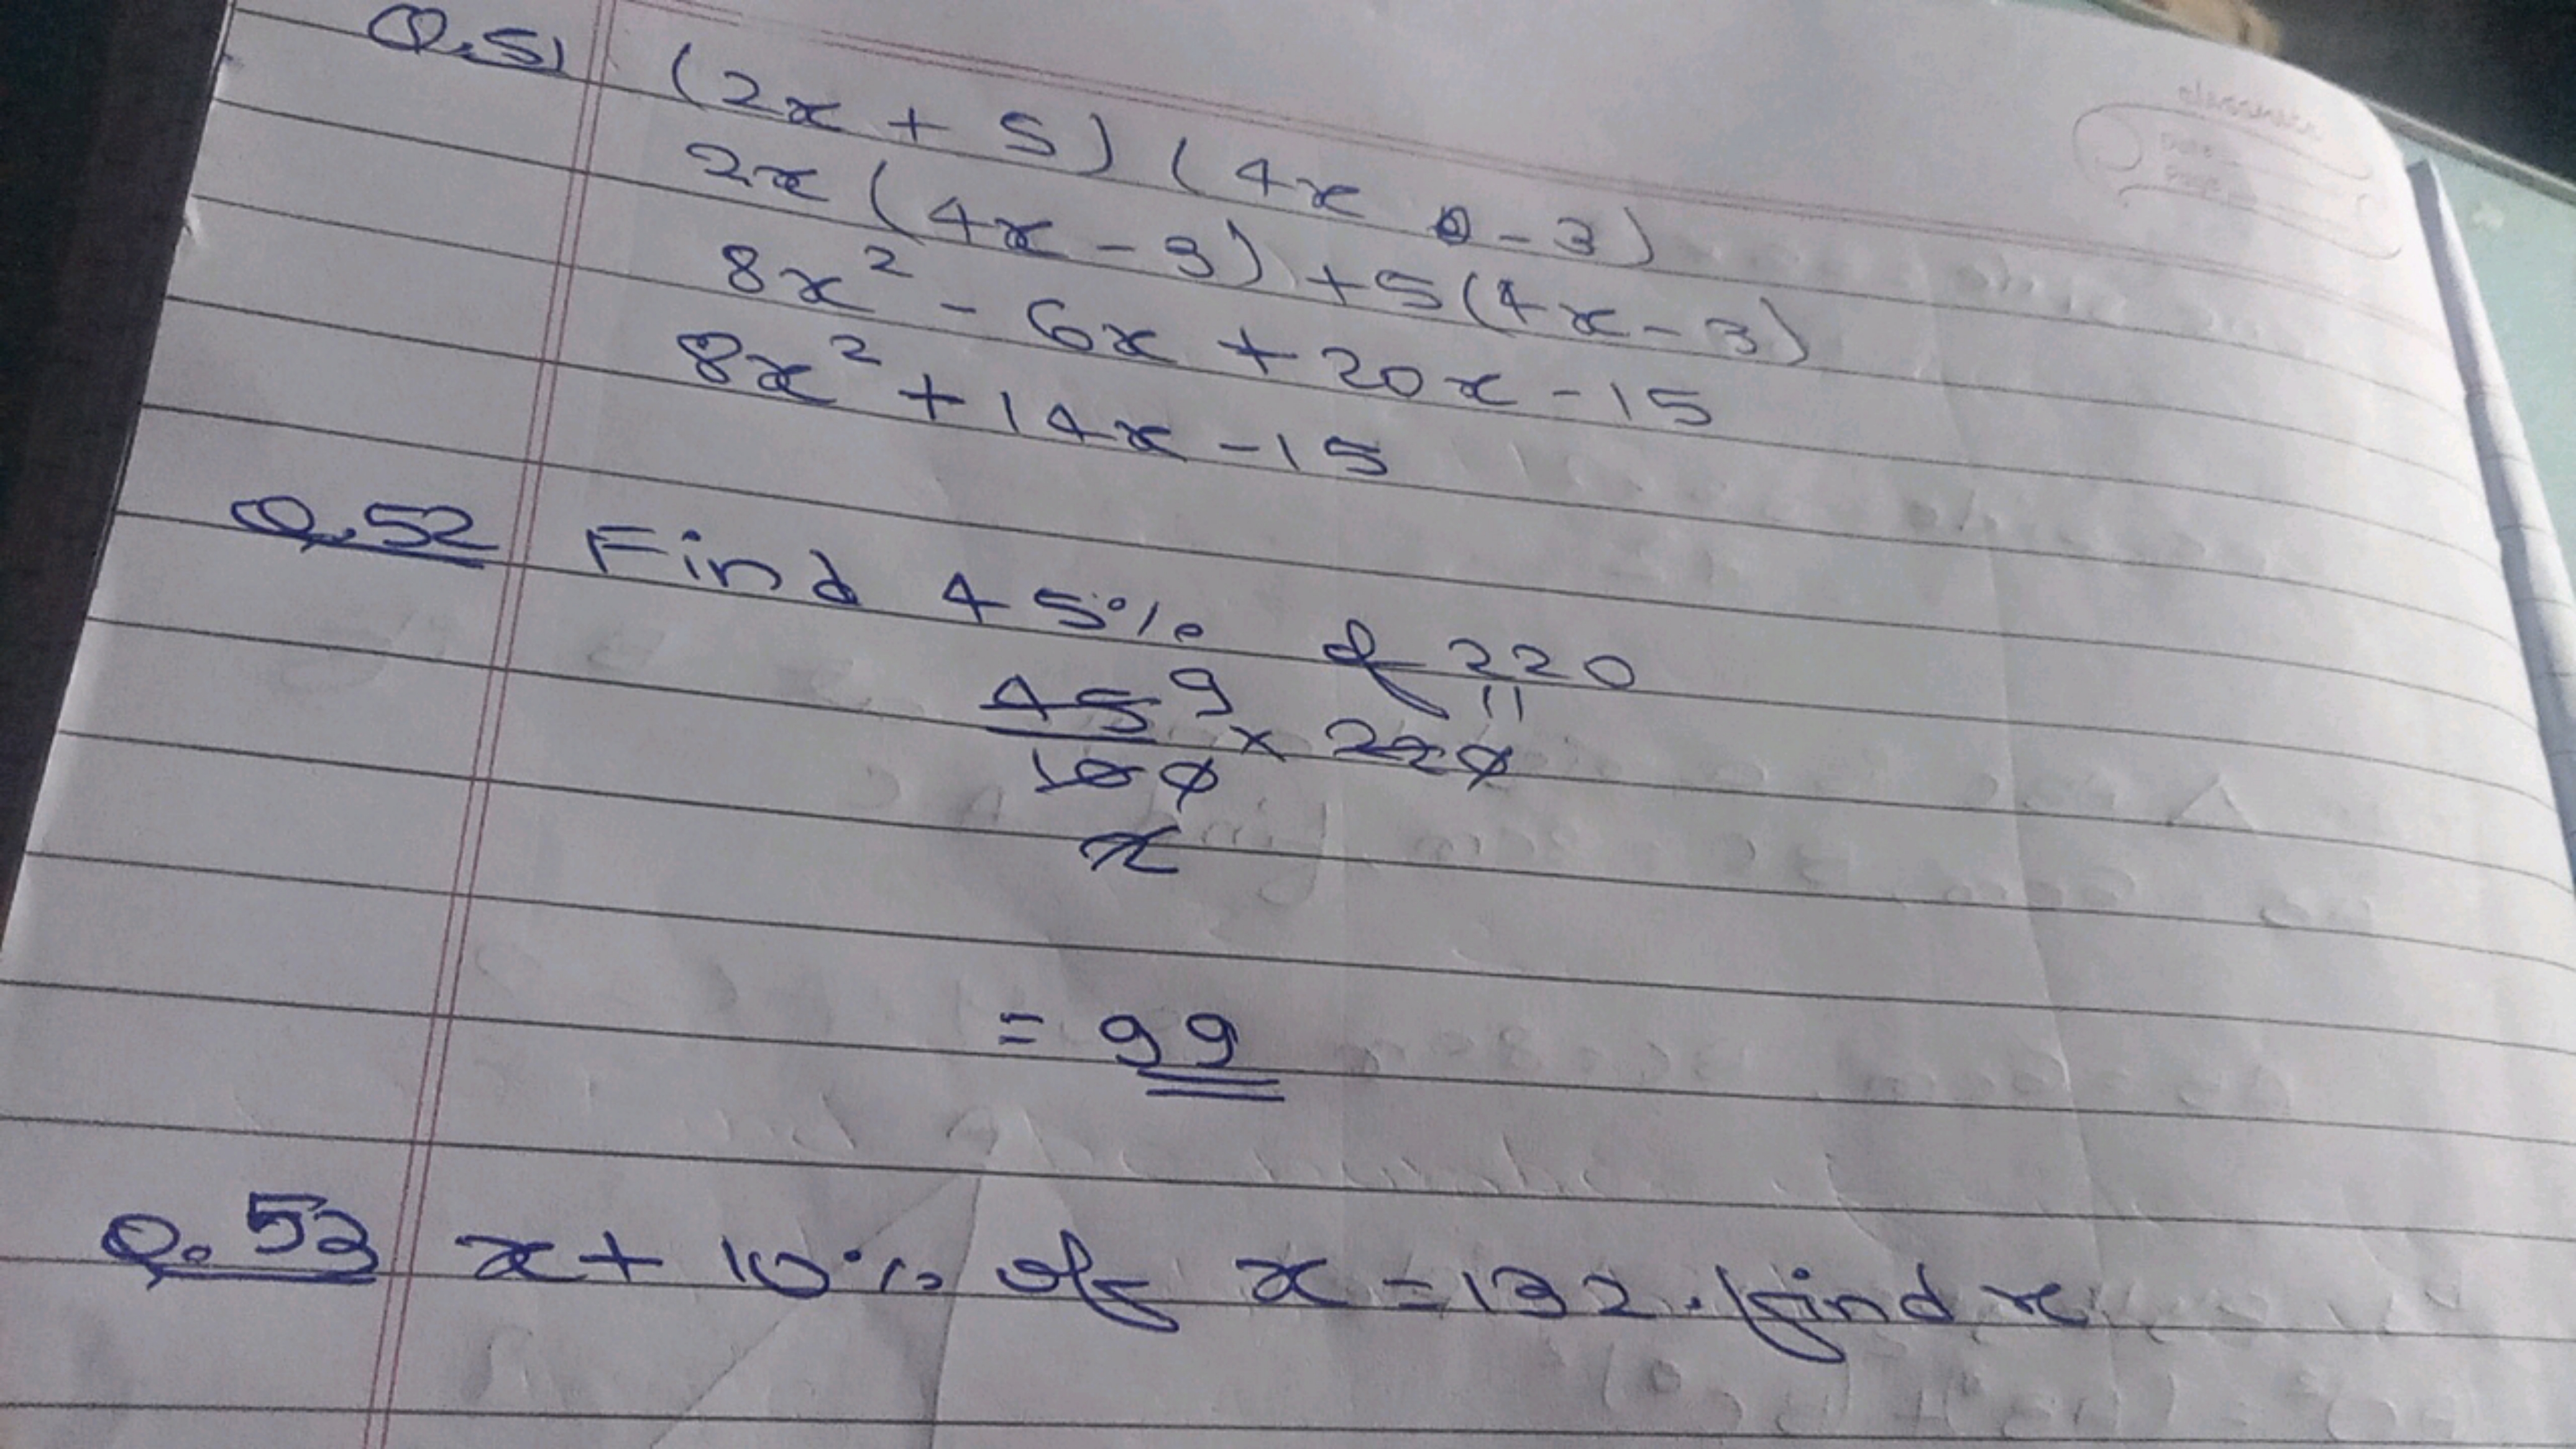 Q.51 (2x + 5) (4x - 3)
2x (4x - 3) + 5(4x - 3)
8x² - 6x + 20x - 15
8x² + 14x - 15
Q.52 Find 45% of 220
9 11
45 × 220
100
= 99
Q.53 x + 10% of x = 132. find x
classmate
Date
Page